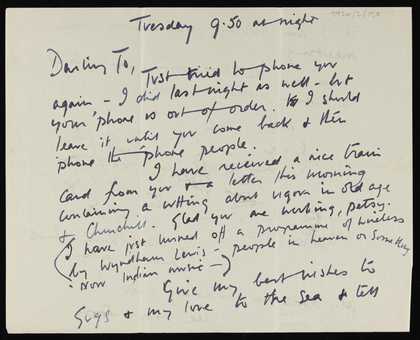 Tuesday 9.50 at night
Darling To,
Just tried to phone you
again - I did last night as well - but
your 'phone is out of order. I should
leave it until you come back & then
phone the 'phone people.
I have received a nice train
card from you & a letter this morning
containing a cutting about vigour in old age
& Churchill. Glad you are working, petsy.
(I have just turned off a programme of wireless
by Wyndham Lewis - people in heaven or something
Now Indian music -)
Give my best wishes to
Gugs & my love to the sea & tell